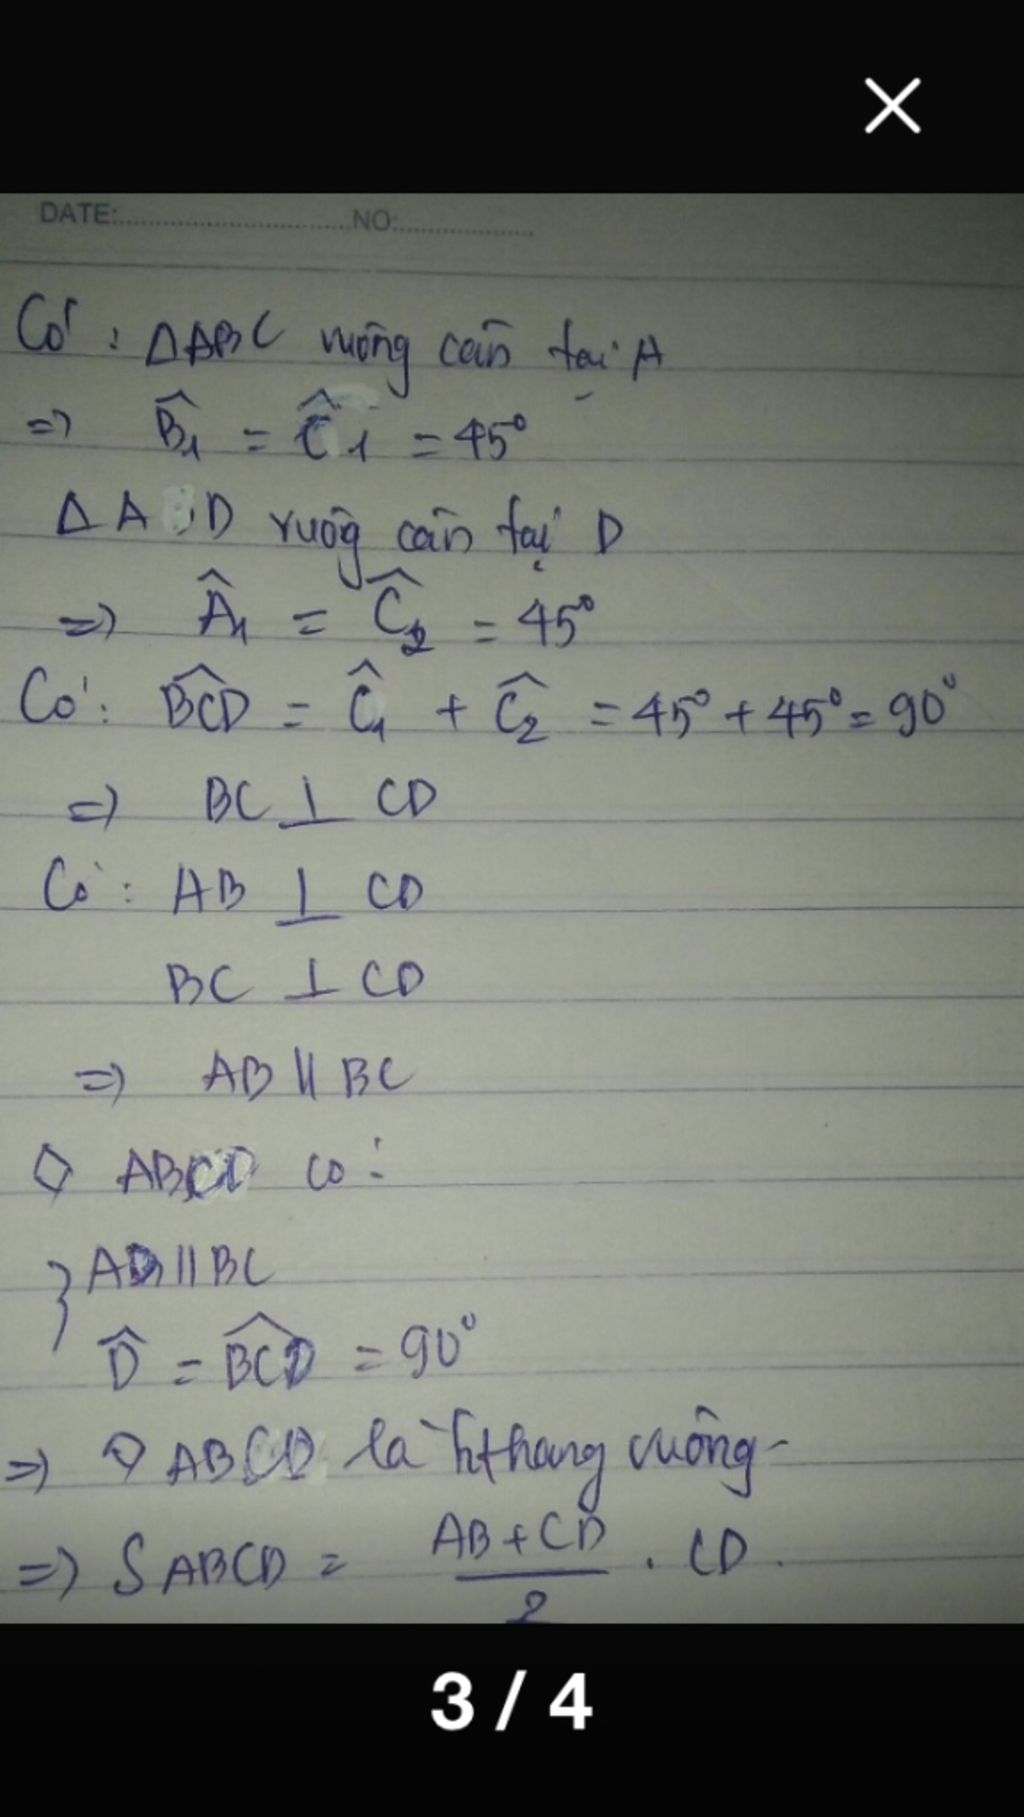 DATE:..............................NO:..................
Có : ΔABC vuông cân tại A
=> B̂₁ = Ĉ₁ = 45°
ΔA D vuôg cân tại D
=> Â₁ = Ĉ₂ = 45°
Có : BCD̂ = Ĉ₁ + Ĉ₂ = 45° + 45° = 90°
=> BC ⊥ CD
Có : AB ⊥ CD
BC ⊥ CD
=> AB || BC
◇ ABCD có :
} AD || BC
D̂ = BCD̂ = 90°
=> ◇ ABCD là hthang vuông
=> SABCD = AB + CD / 2 . CD .
3 / 4